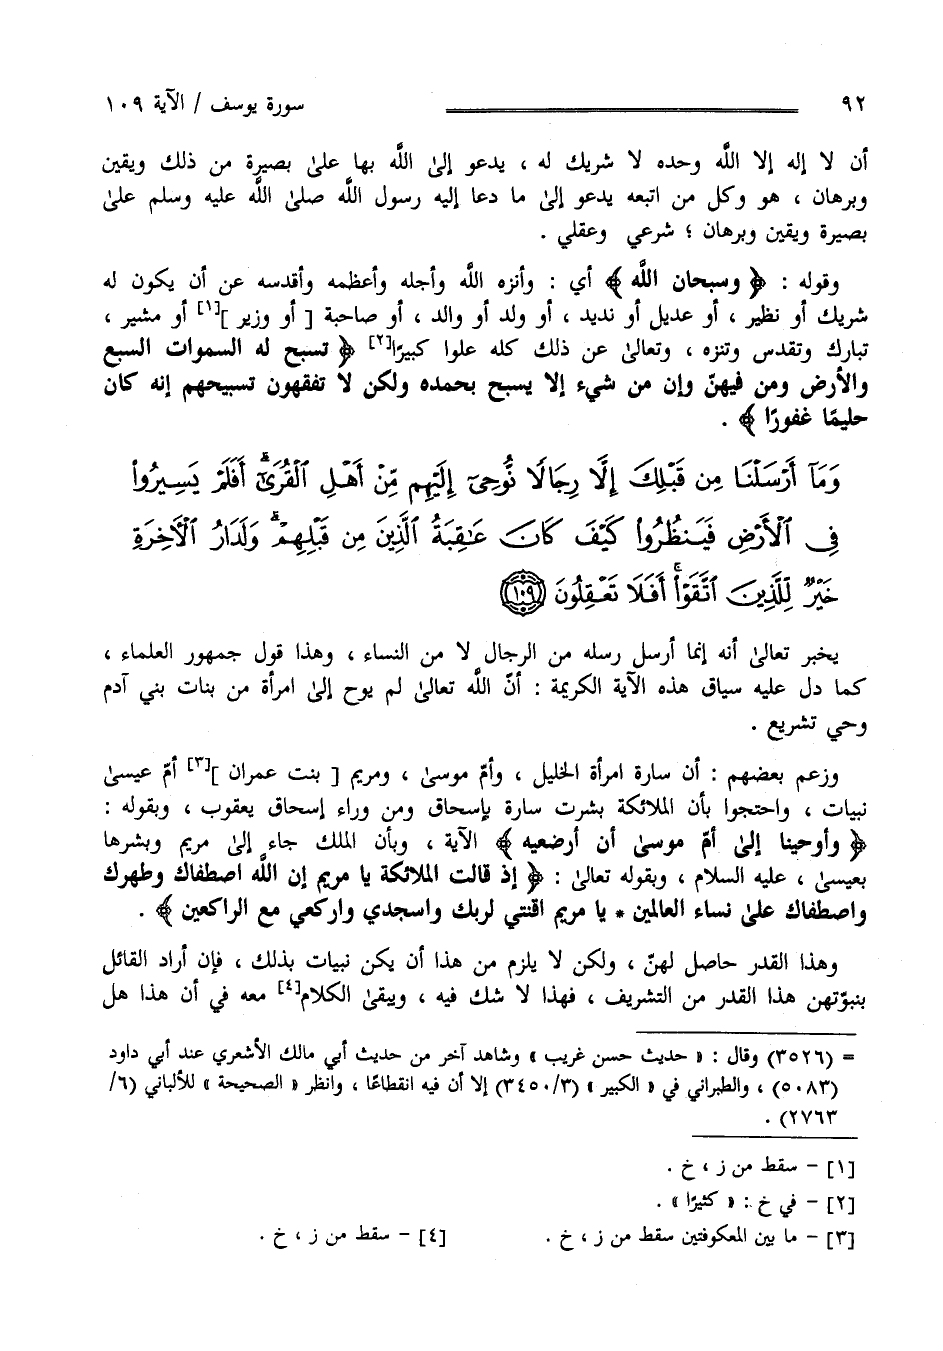 ٩٢
سورة يوسف / الآية ١٠٩
أن لا إله إلا اللَّه وحده لا شريك له ، يدعو إلىٰ اللَّه بها علىٰ بصيرة من ذلك ويقين
وبرهان ، هو وكل من اتبعه يدعو إلىٰ ما دعا إليه رسول اللَّه صلىٰ اللَّه عليه وسلم علىٰ
بصيرة ويقين وبرهان ؛ شرعي وعقلي .
وقوله : ﴿ وسبحان اللَّه ﴾ أي : وأنزه اللَّه وأجله وأعظمه وأقدسه عن أن يكون له
شريك أو نظير ، أو عديل أو نديد ، أو ولد أو والد ، أو صاحبة [ أو وزير ][١] أو مشير ،
تبارك وتقدس وتنزه ، وتعالىٰ عن ذلك كله علوا كبيرًا[٢] ﴿ تسبح له السموات السبع
والأرض ومن فيهنّ وإن من شيء إلا يسبح بحمده ولكن لا تفقهون تسبيحهم إنه كان
حليمًا غفورًا ﴾ .
وَمَآ أَرْسَلْنَا مِن قَبْلِكَ إِلَّا رِجَالًا نُّوحِىٓ إِلَيْهِم مِّنْ أَهْلِ ٱلْقُرَىٰٓ ۗ أَفَلَمْ يَسِيرُوا۟
فِى ٱلْأَرْضِ فَيَنظُرُوا۟ كَيْفَ كَانَ عَٰقِبَةُ ٱلَّذِينَ مِن قَبْلِهِمْ ۗ وَلَدَارُ ٱلْأَخِرَةِ
خَيْرٌ لِّلَّذِينَ ٱتَّقَوْا۟ ۗ أَفَلَا تَعْقِلُونَ ١٠٩
يخبر تعالىٰ أنه إنما أرسل رسله من الرجال لا من النساء ، وهذا قول جمهور العلماء ،
كما دل عليه سياق هذه الآية الكريمة : أنّ اللَّه تعالىٰ لم يوح إلىٰ امرأة من بنات بني آدم
وحي تشريع .
وزعم بعضهم : أن سارة امرأة الخليل ، وأمّ موسىٰ ، ومريم [ بنت عمران ][٣] أمّ عيسىٰ
نبيات ، واحتجوا بأن الملائكة بشرت سارة بإسحاق ومن وراء إسحاق يعقوب ، وبقوله :
﴿ وأوحينا إلىٰ أمّ موسىٰ أن أرضعيه ﴾ الآية ، وبأن الملك جاء إلىٰ مريم وبشرها
بعيسىٰ ، عليه السلام ، وبقوله تعالىٰ : ﴿ إذ قالت الملائكة يا مريم إن اللَّه اصطفاك وطهرك
واصطفاك علىٰ نساء العالمين * يا مريم اقنتي لربك واسجدي واركعي مع الراكعين ﴾ .
وهذا القدر حاصل لهنّ ، ولكن لا يلزم من هذا أن يكن نبيات بذلك ، فإن أراد القائل
بنبوّتهن هذا القدر من التشريف ، فهذا لا شك فيه ، ويبقىٰ الكلام[٤] معه في أن هذا هل
= (٣٥٢٦) وقال : « حديث حسن غريب » وشاهد آخر من حديث أبي مالك الأشعري عند أبي داود
(٥٠٨٣) ، والطبراني في « الكبير » (٣٤٥٠/٣) إلا أن فيه انقطاعًا ، وانظر « الصحيحة » للألباني (٦/
٢٧٦٣) .
[١] - سقط من ز ، خ .
[٢] - في خ : « كثيرًا » .
[٣] - ما بين المعكوفتين سقط من ز ، خ .
[٤] - سقط من ز ، خ .